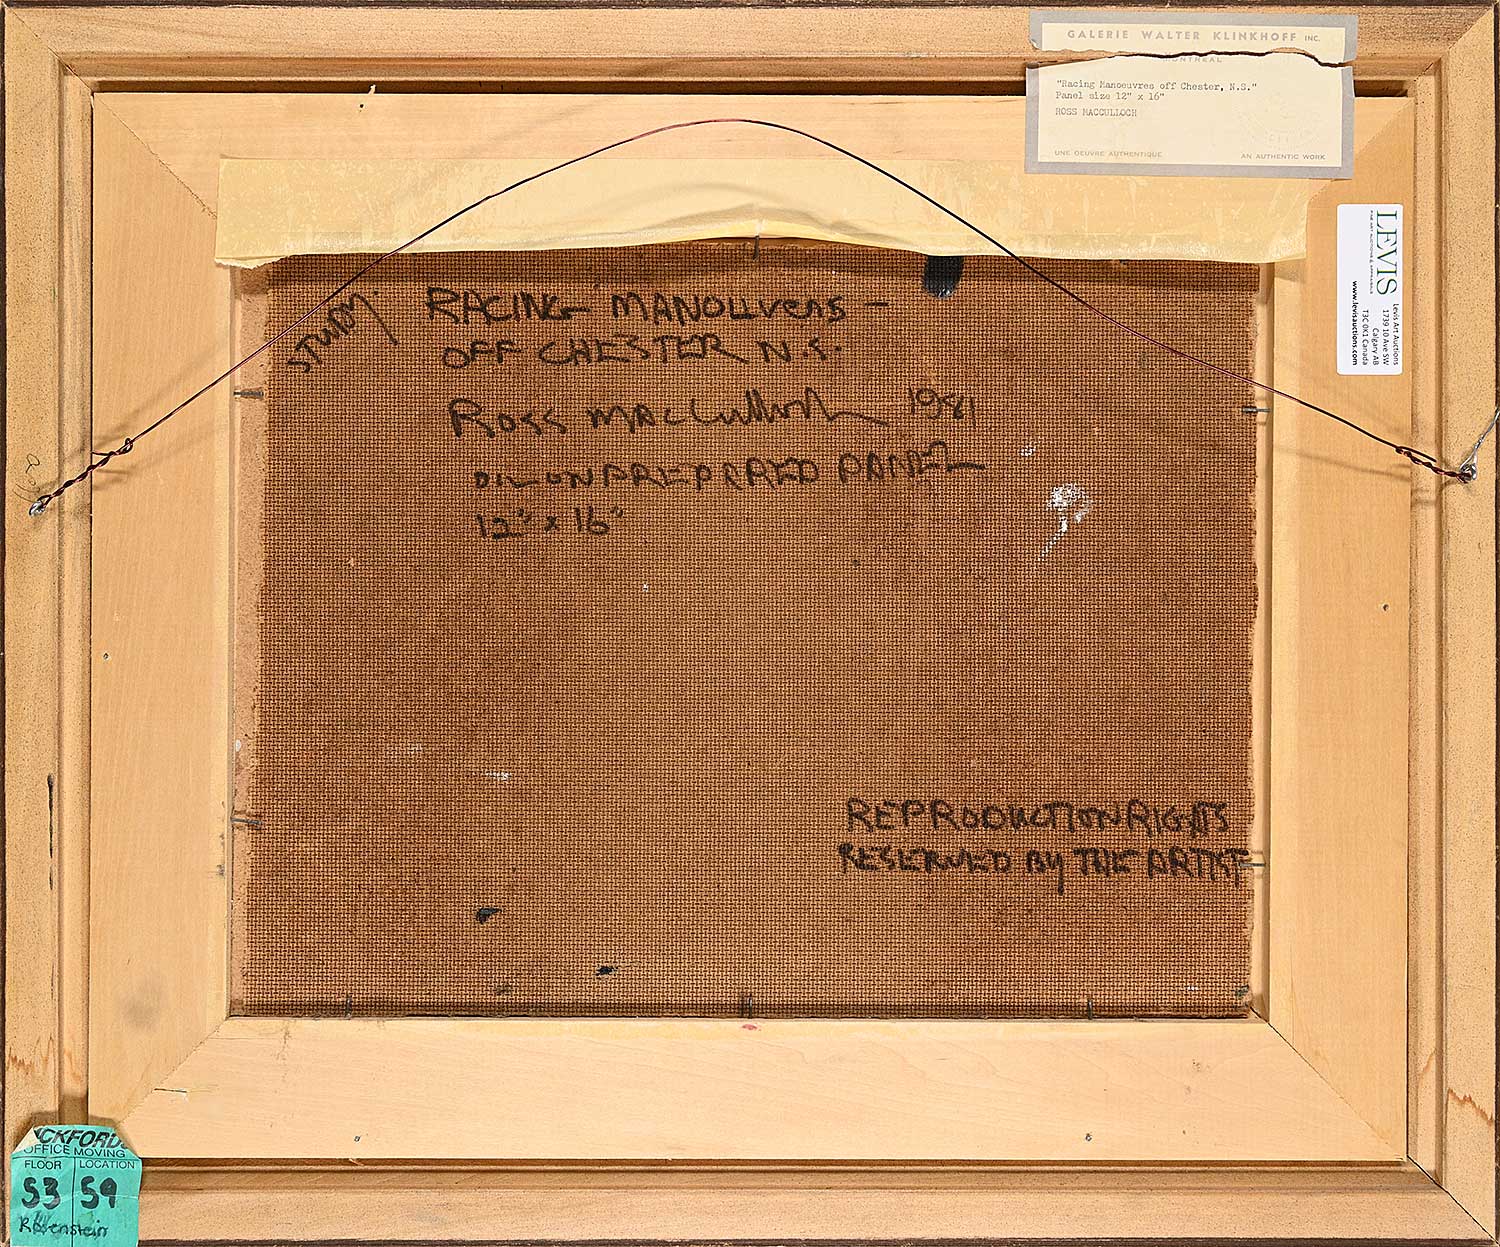 GALERIE WALTER KLINKHOFF INC.
MONTREAL
"Racing Manoeuvres off Chester, N.S."
Panel size 12" x 16"
ROSS MACCULLOCH
UNE OEUVRE AUTHENTIQUE
AN AUTHENTIC WORK
LEVIS
FINE ART AUCTIONS & APPRAISALS
Levis Art Auctions
1739 10 Ave SW
Calgary AB
T3C 0K1 Canada
www.levisauctions.com
STUDY.
RACING MANOUVERS -
OFF CHESTER N.S.
ROSS MACCulloch 1981
OIL ON PREPRARED PANEL
12" x 16"
REPRODUCTION RIGHTS
RESERVED BY THE ARTIST
CKFORDS
OFFICE MOVING
FLOOR LOCATION
53 59
Rosenstein